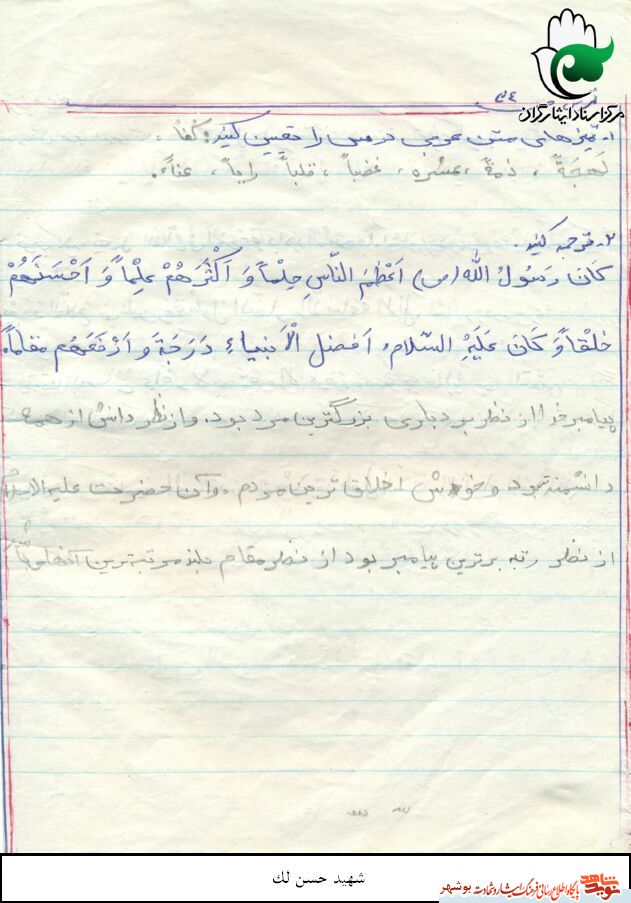 مرکز اسناد ایثارگران
۱- تمیزهای متن عربی درس را تعیین کنید: کفاً،
لَهجَةً، ذمةً، عسُره، غضباً، قلباً رایاً، عناءً.
۲- ترجمه کنید.
کانَ رَسُولُ اللّه (ص) اَعْظَمَ النّاسِ حِلْماً وَ اَکْثَرَهُمْ عِلْماً وَ اَحْسَنَهُمْ
خلْقاً وَ کانَ عَلَیْهِ السّلام، اَفضل الْاَنبیاءِ دَرَجَة وَ اَرْفَعَهُم مقاماً.
پیامبر خدا از نظر بردباری بزرگترین مرد بود. و از نظر دانش از همه
دانشمندتر بود و خوش اخلاق ترین مردم. و آن حضرت علیه السلام
از نظر رتبه برترین پیامبر بود از نظر مقام بلند مرتبه ترین آنها
شهید حسن لک
نوید شاهد پایگاه اطلاع رسانی فرهنگ ایثار و شهادت بوشهر